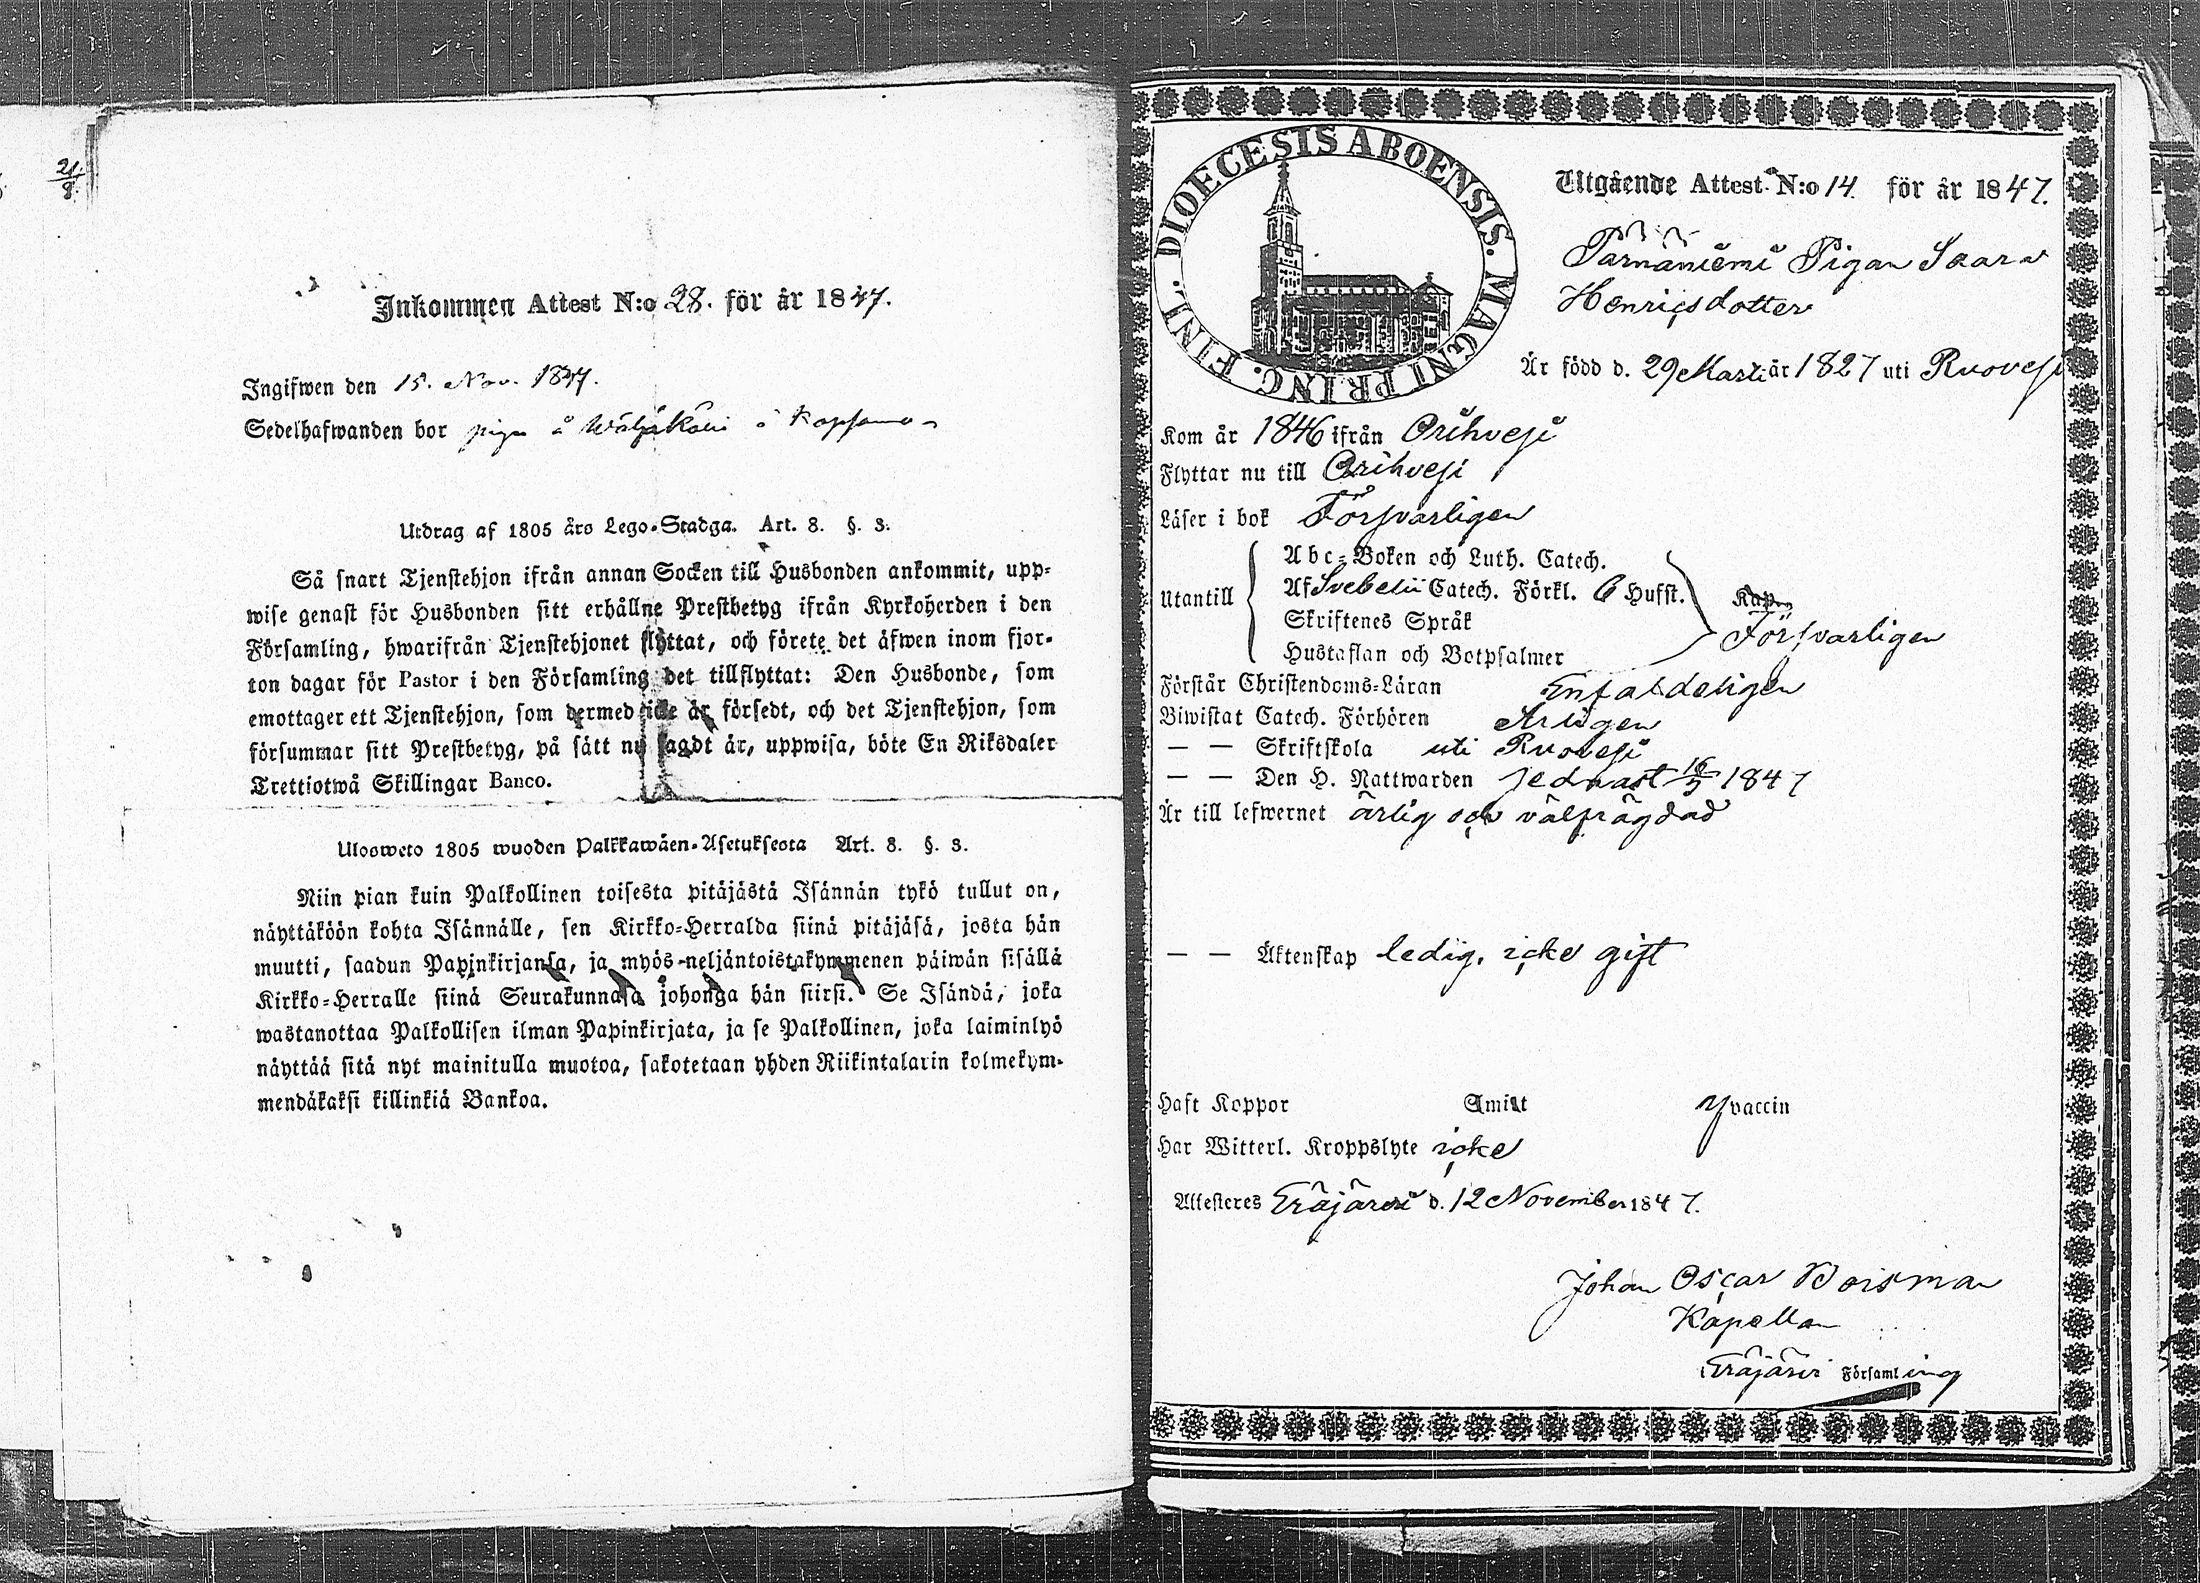 21
8
Inkommen Attest N:o 28. för år 1847.
Ingifwen den 15. Nov. 1847.
Sedelhafwanden bor piga å
Utdrag af 1805 års Lego-Stadga. Art. 8. §. 3.
Så snart Tjenstehjon ifrån annan Socken till Husbonden ankommit, upp-
wise genast för Husbonden sitt erhållne Prestbetyg ifrån Kyrkoherden i den
Församling, hwarifrån Tjenstehjonet flyttat, och förete det äfwen inom fjor-
ton dagar för Pastor i den Församling det tillflyttat: Den Husbonde, som
emottager ett Tjenstehjon, som dermed icke är försedt, och det Tjenstehjon, som
försummar sitt Prestbetyg, på sätt nu sagdt är, uppwisa, böte En Riksdaler
Trettiotwå Skillingar Banco.
Ulosweto 1805 wuoden Palkkawäen-Asetuksesta Art. 8. §. 3.
Niin pian kuin Palkollinen toisesta pitäjästä Isännän tykö tullut on,
näyttäköön kohta Isännälle, sen Kirkko-Herralda siinä pitäjäsä, josta hän
muutti, saadun Papinkirjansa, ja myös neljäntoistakymmenen päiwän sisällä
Kirkko-Herralle siinä Seurakunnasa johonga hän siirsi. Se Isändä, joka
wastanottaa Palkollisen ilman Papinkirjata, ja se Palkollinen, joka laiminlyö
näyttää sitä nyt mainitulla muotoa, sakotetaan yhden Riikintalarin kolmekym-
mendäkaksi killinkiä Bankoa.
DIOECESIS ABOENSIS. MAGNI PRINC. FINL.
Utgående Attest N:o 14. för år 1847.
Pärnäniemi Pigan Saara
Henricsdotter
Är född d. 29 Martii år 1827 uti Ruovesi
Kom år 1846 ifrån Orihvesi
Flyttar nu till Orihvesi
Läser i bok Försvarligen
Utantill
Abc-Boken och Luth. Catech.
Af Svebelii Catech. Förkl. 6 Hufst.
Skriftenes Språk
Hustaflan och Botpsalmer
Försvarligen
Förstår Christendoms-Läran Enfaldeligen
Biwistat Catech. Förhören Årligen
— — Skriftskola uti Ruovesi
— — Den H. Nattwarden sednast 16/5 1847
Är till lefwernet ärlig och välfrägdad
— — Äktenskap ledig, icke gift
Haft Koppor Smitt vaccin
Har Witterl. Kroppslyte icke
Attesteres Eräjärvi d. 12 November 1847.
Johan Oscar Roisman
Kapellan
Eräjärvi Församling